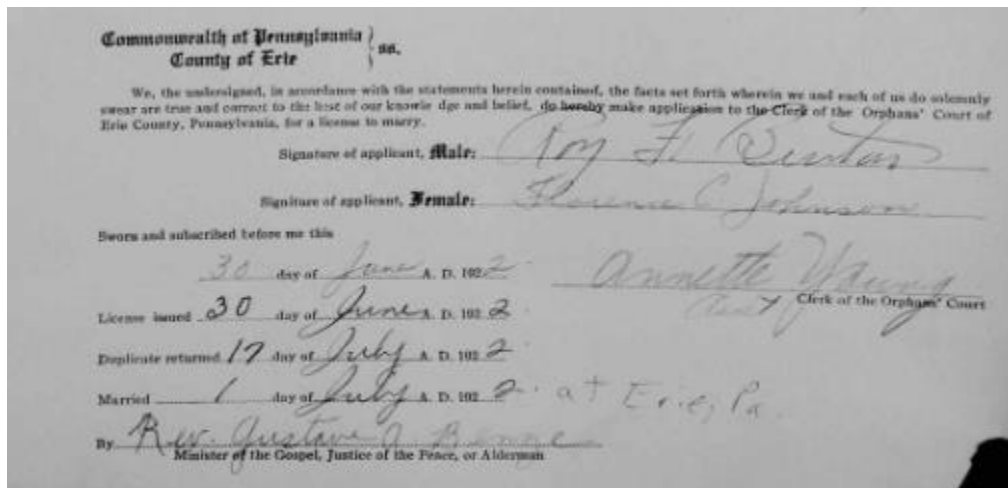 Commonwealth of Pennsylvania
County of Erie } ss.
We, the undersigned, in accordance with the statements herein contained, the facts set forth wherein we and each of us do solemnly
swear are true and correct to the best of our knowle dge and belief, do hereby make application to the Clerk of the Orphans' Court of
Erie County, Pennsylvania, for a license to marry.
Signature of applicant, Male: Roy F.
Signiture of applicant, Female: Florence C Johnson
Sworn and subscribed before me this
30 day of June A. D. 192 2 Annette Young
Asst Clerk of the Orphans' Court
License issued 30 day of June A. D. 192 2
Duplicate returned 17 day of July A. D. 192 2
Married 1 day of July A. D. 192 2 at Erie, Pa.
By Rev. Gustave A
Minister of the Gospel, Justice of the Peace, or Alderman